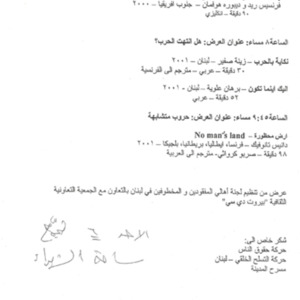 فرنسيس ريد و ديبوره هوفمان – جنوب افريقيا – ٢٠٠٠
٩٠ دقيقة – انكليزي
الساعة ٨ مساء: عنوان العرض: هل انتهت الحرب؟
نكاية بالحرب – زينة صفير – لبنان – ٢٠٠١
٣٠ دقيقة – عربي – مترجم الى الفرنسية
اليك اينما تكون – برهان علوية – لبنان – ٢٠٠١
٥٢ دقيقة – عربي
الساعة ٩:٤٥ مساء: عنوان العرض: حروب متشابهة
ارض محظورة – No man's land
دانيس تانوفيك – فرنسا، ايطاليا، بريطانيا، بلجيكا – ٢٠٠١
٩٨ دقيقة – صربو كرواتي – مترجم الى العربية
عرض من تنظيم لجنة أهالي المفقودين و المخطوفين في لبنان بالتعاون مع الجمعية التعاونية
الثقافية "بيروت دي سي"
شكر خاص الى:
حركة حقوق الناس
حركة التسلح الخلقي – لبنان
مسرح المدينة
الاحد
ساحة الشهداء